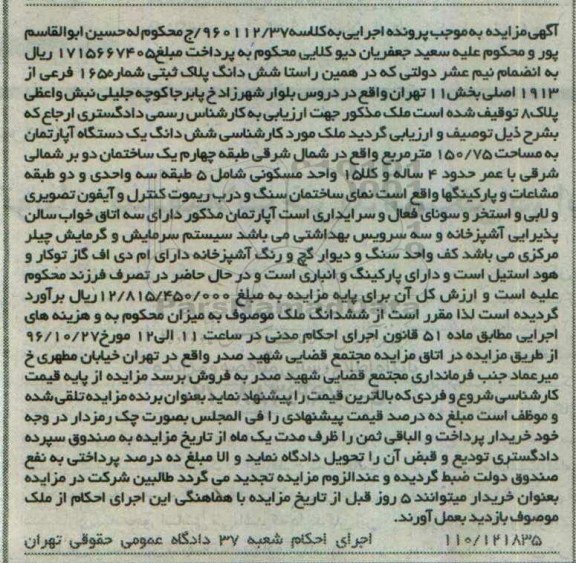 آگهی مزایده به موجب پرونده اجرایی به کلاسه ۹۶۰۱۱۲/۳۷/ج محکوم له حسین ابوالقاسم
پور و محکوم علیه سعید جعفریان دیو کلایی محکوم به پرداخت مبلغ ۱۷۱۵۶۶۷۴۰۵ ریال
به انضمام نیم عشر دولتی که در همین راستا شش دانگ پلاک ثبتی شماره ۱۶۵۵ فرعی از
۱۹۱۳ اصلی بخش ۱۱ تهران واقع در دروس بلوار شهرزاد خ پابرجا کوچه جلیلی نبش واعظی
پلاک ۸ توقیف شده است ملک مذکور جهت ارزیابی به کارشناس رسمی دادگستری ارجاع که
بشرح ذیل توصیف و ارزیابی گردید ملک مورد کارشناسی شش دانگ یک دستگاه آپارتمان
به مساحت ۱۵۰/۷۵ مترمربع واقع در شمال شرقی طبقه چهارم یک ساختمان دو بر شمالی
شرقی با عمر حدود ۴ ساله و کلا ۱۵ واحد مسکونی شامل ۵ طبقه سه واحدی و دو طبقه
مشاعات و پارکینگها واقع است نمای ساختمان سنگ و درب ریموت کنترل و آیفون تصویری
و لابی و استخر و سونای فعال و سرایداری است آپارتمان مذکور دارای سه اتاق خواب سالن
پذیرایی آشپزخانه و سه سرویس بهداشتی می باشد سیستم سرمایش و گرمایش چیلر
مرکزی می باشد کف واحد سنگ و دیوار گچ و رنگ آشپزخانه دارای ام دی اف گاز توکار و
هود استیل است و دارای پارکینگ و انباری است و در حال حاضر در تصرف فرزند محکوم
علیه است و ارزش کل آن برای پایه مزایده به مبلغ ۱۲/۸۱۵/۴۵۰/۰۰۰ ریال برآورد
گردیده است لذا مقرر است از ششدانگ ملک موصوف به میزان محکوم به و هزینه های
اجرایی مطابق ماده ۵۱ قانون اجرای احکام مدنی در ساعت ۱۱ الی ۱۲ مورخ ۹۶/۱۰/۲۷
از طریق مزایده در اتاق مزایده مجتمع قضایی شهید صدر واقع در تهران خیابان مطهری خ
میرعماد جنب فرمانداری مجتمع قضایی شهید صدر به فروش برسد مزایده از پایه قیمت
کارشناسی شروع و فردی که بالاترین قیمت را پیشنهاد نماید بعنوان برنده مزایده تلقی شده
و موظف است مبلغ ده درصد قیمت پیشنهادی را فی المجلس بصورت چک رمزدار در وجه
خود خریدار پرداخت و الباقی ثمن را ظرف مدت یک ماه از تاریخ مزایده به صندوق سپرده
دادگستری تودیع و قبض آن را تحویل دادگاه نماید و الا مبلغ ده درصد پرداختی به نفع
صندوق دولت ضبط گردیده و عندالزوم مزایده تجدید می گردد طالبین شرکت در مزایده
بعنوان خریدار میتوانند ۵ روز قبل از تاریخ مزایده با هماهنگی این اجرای احکام از ملک
موصوف بازدید بعمل آورند.
۱۱۰/۱۲۱۸۳۵ اجرای احکام شعبه ۳۷ دادگاه عمومی حقوقی تهران